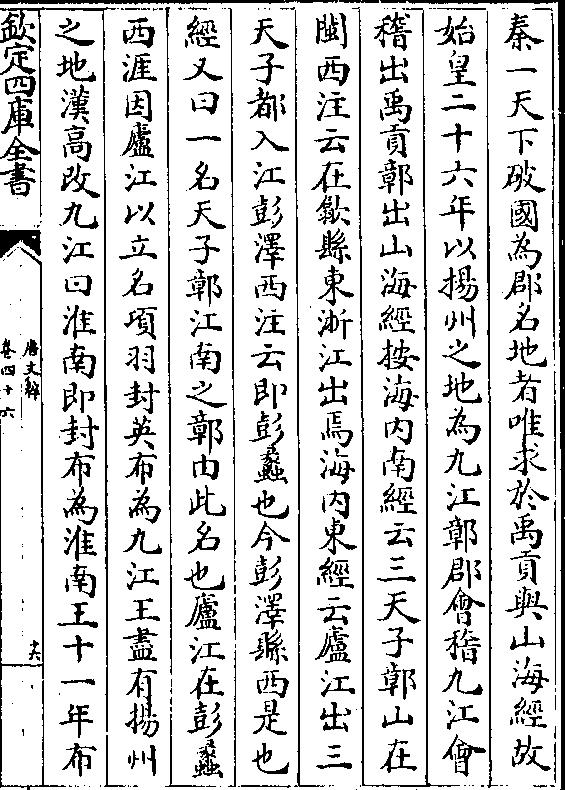 秦一天下破國為郡名地者唯求於禹貢與山海經故
始皇二十六年以揚州之地為九江鄣郡會稽九江會
稽出禹貢鄣出山海經按海内南經云三天子鄣山在
閩西注云在歙縣東浙江出焉海内東經云廬江出三
天子都入江彭澤西注云即彭蠡也今彭澤縣西是也
經又曰一名天子鄣江南之鄣由此名也廬江在彭蠡
西涯因廬江以立名項羽封英布為九江王盡有揚州
之地漢高改九江曰淮南即封布為淮南王十一年布
欽定四庫全書
唐文粹
卷四十六
十六